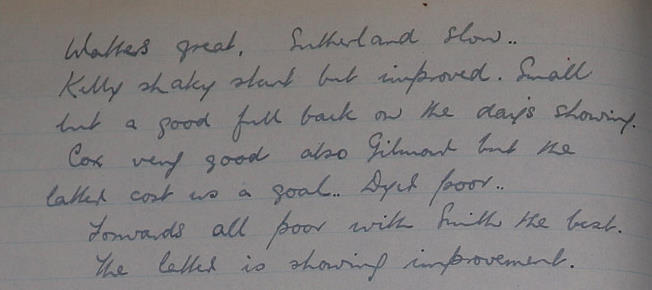 Walters great. Sutherland slow..
Kelly shaky start but improved. Small
but a good full back on the day's showing.
Cox very good also Gilmour but the
latter cost us a goal.. Dyer poor..
Forwards all poor with Smith the best.
The latter is showing improvement.